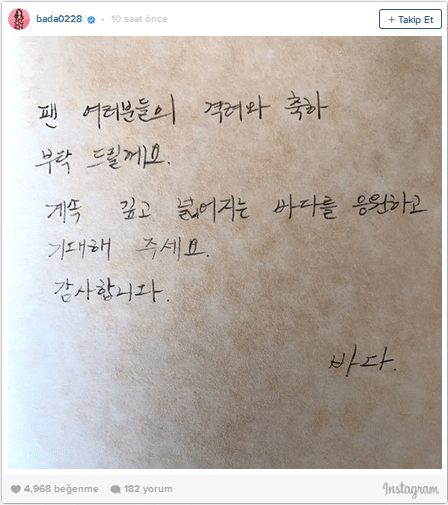 bada0228 • 10 saat önce
+ Takip Et
팬 여러분들의 격려와 축하
부탁 드릴께요.
계속 깊고 넓어지는 바다를 응원하고
기대해 주세요.
감사합니다.
바다.
4,968 beğenme 182 yorum
Instagram